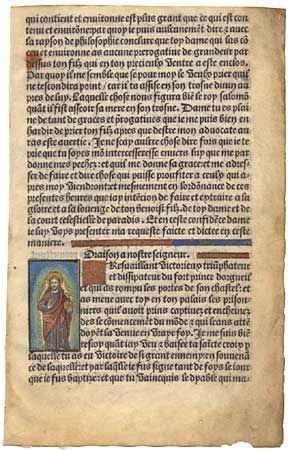 qui contient et environne est plus grant que ce qui est con
tenu et environne pourtant puis aucunement dire z avec
la rayson de philosophie conclure que toy dame qui as cō
ceu et environne as aucune prerogative de grandeur par
dessus ton filz qui en ton precieux Ventre a este enclos.
Par quoy il me semble que se pour moy le Veulx prier quil
ne tescondira point / car il ta assise en son trosne divin au
pres de luy. Laquelle chose nous figura biē le roy salomō
quāt il fist asseoir sa mere en son trosne. Dame tu es plai
ne de tant de graces et prerogatives que ie me puis bien en
hardir de prier ton filz apres que destre mon advocate au
ras este avertie. Je ne scay autre chose dire fors que ie te
prie que ta soyes mō intercesseresse envers luy que me par
donne mes pechez: et quil me donne sa grace: et me adres
ser de faire et dire chose qui puisse proffiter a ceulx qui a
pres moy Viendront et mesmement en lordōnance de ces
presentes heures que iay intēcion de faire et extraire a sa
gloire et a la louenge de toy benoist filz. de toy dame et de
la court celestielle de paradis. Et en ceste confidēce dame
ie Vays presenter ma requeste faicte et dictee en ceste
maniere.
Oraison a nostre seigneur.
Resaillant Victorieux triūphateur
et dissipateur du fort prince dorgueil
et qui as rompu les portes de son chastel: et
as mene avec toy en ton palais les prison
niers quil avoit prins captivez et encheinez
des le cōmencement du mōde z qui leans ait
doyēt la Venue en Vraye foy. Je me suis biē
 quāt iay Veu z baisee ta saicte croix p
laquelle tu as eu Victoire de si grant ennemy: en souvenā
ce de laquelle: et par laq̄lle ie fus signe tant de foys le iour
que ie fus baptize: et que tu Vainquis le dyable qui ma-